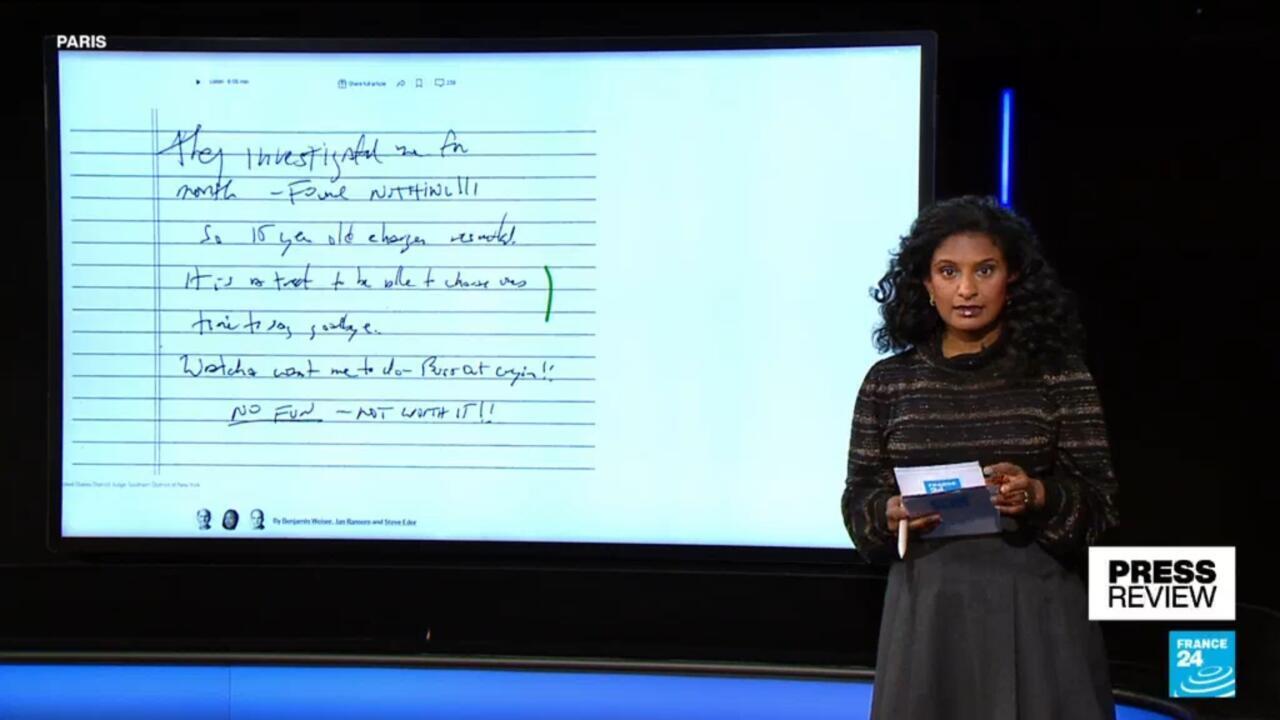 PARIS
Listen · 6:05 min
Share full article
They investigated me for
month – Found NOTHING!!!
So 15 year old charges resulted.
It is a treat to be able to choose ones
time to say goodbye.
Watcha want me to do – Burst out cryin!!
NO FUN – NOT WORTH IT!!
United States District Judge Southern District of New York
By Benjamin Weiser, Jan Ransom and Steve Eder
FRANCE
24
PRESS
REVIEW
FRANCE
24